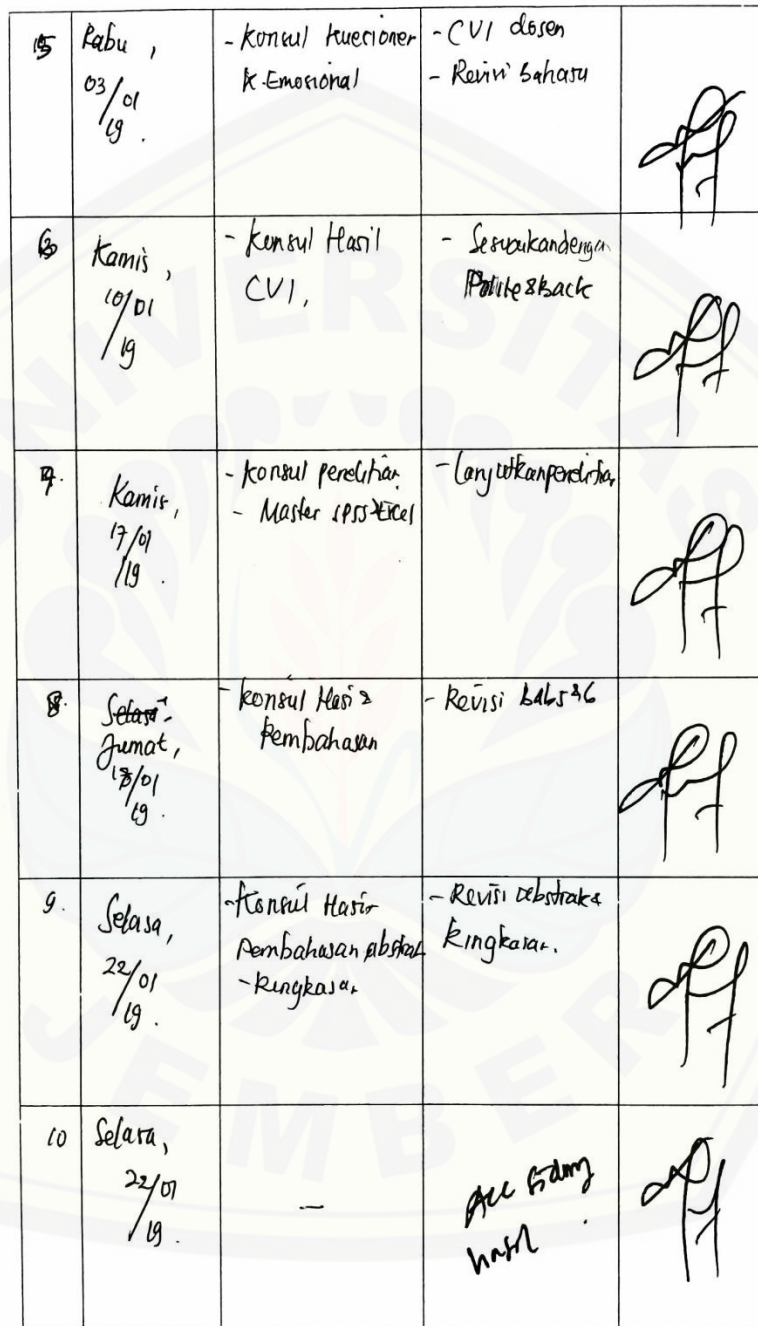 5 Rabu ,
03/01
19 .
- Konsul Kuesioner
K. Emosional
- CVI dosen
- Revisi bahasa
6 Kamis ,
10/01
/19
- Konsul Hasil
CVI,
- Sesuaikan dengan
Polite & back
7. Kamis,
17/01
/19
- Konsul penelitian
- Master SPSS Excel
- Lanjutkan penelitian
8. Selasa
Jumat,
18/01
19 .
- Konsul Hasil &
Pembahasan
- Revisi bab 5 & 6
9. Selasa,
22/01
/19 .
- Konsul Hasil
Pembahasan abstrak
- Ringkasan
- Revisi abstrak &
Ringkasan.
10 Selasa,
22/01
/19 .
—
Acc sidang
hasil .
UNIVERSITAS
JEMBER